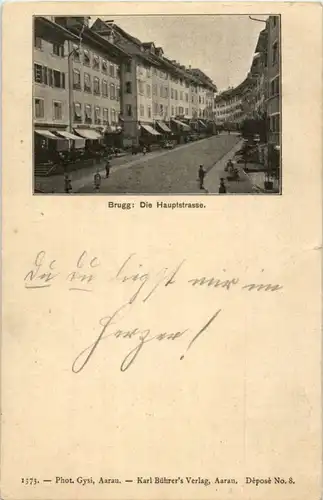 Brugg: Die Hauptstrasse.
Du Du liegst mir im
Herzen!
1373. — Phot. Gysi, Aarau. — Karl Bührer's Verlag, Aarau. Déposé No. 8.